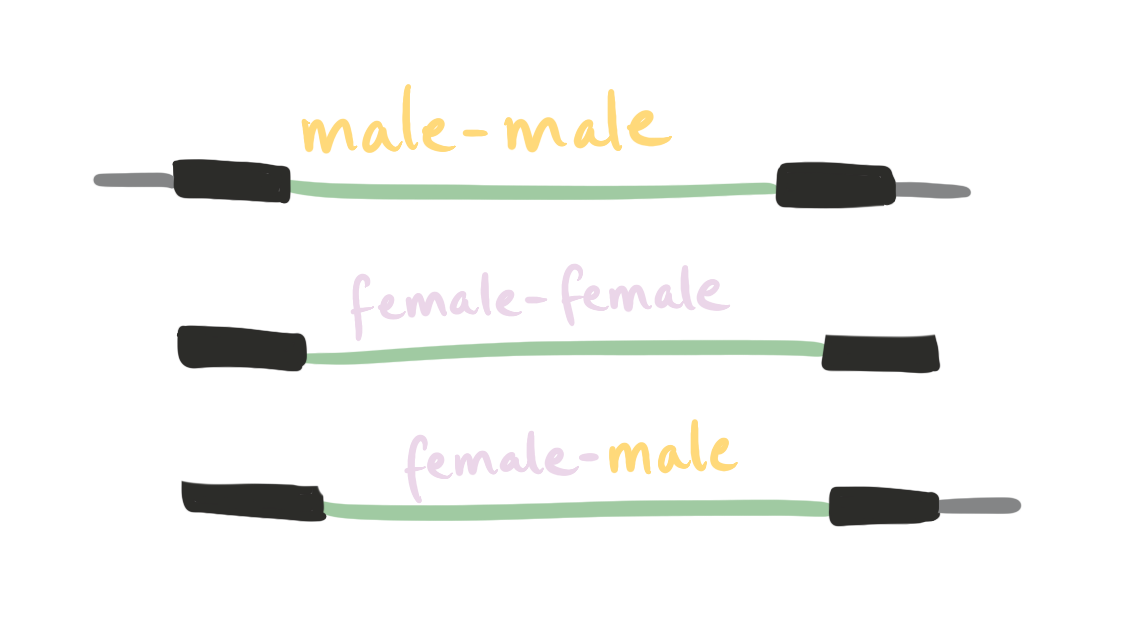 male-male
female-female
female-male